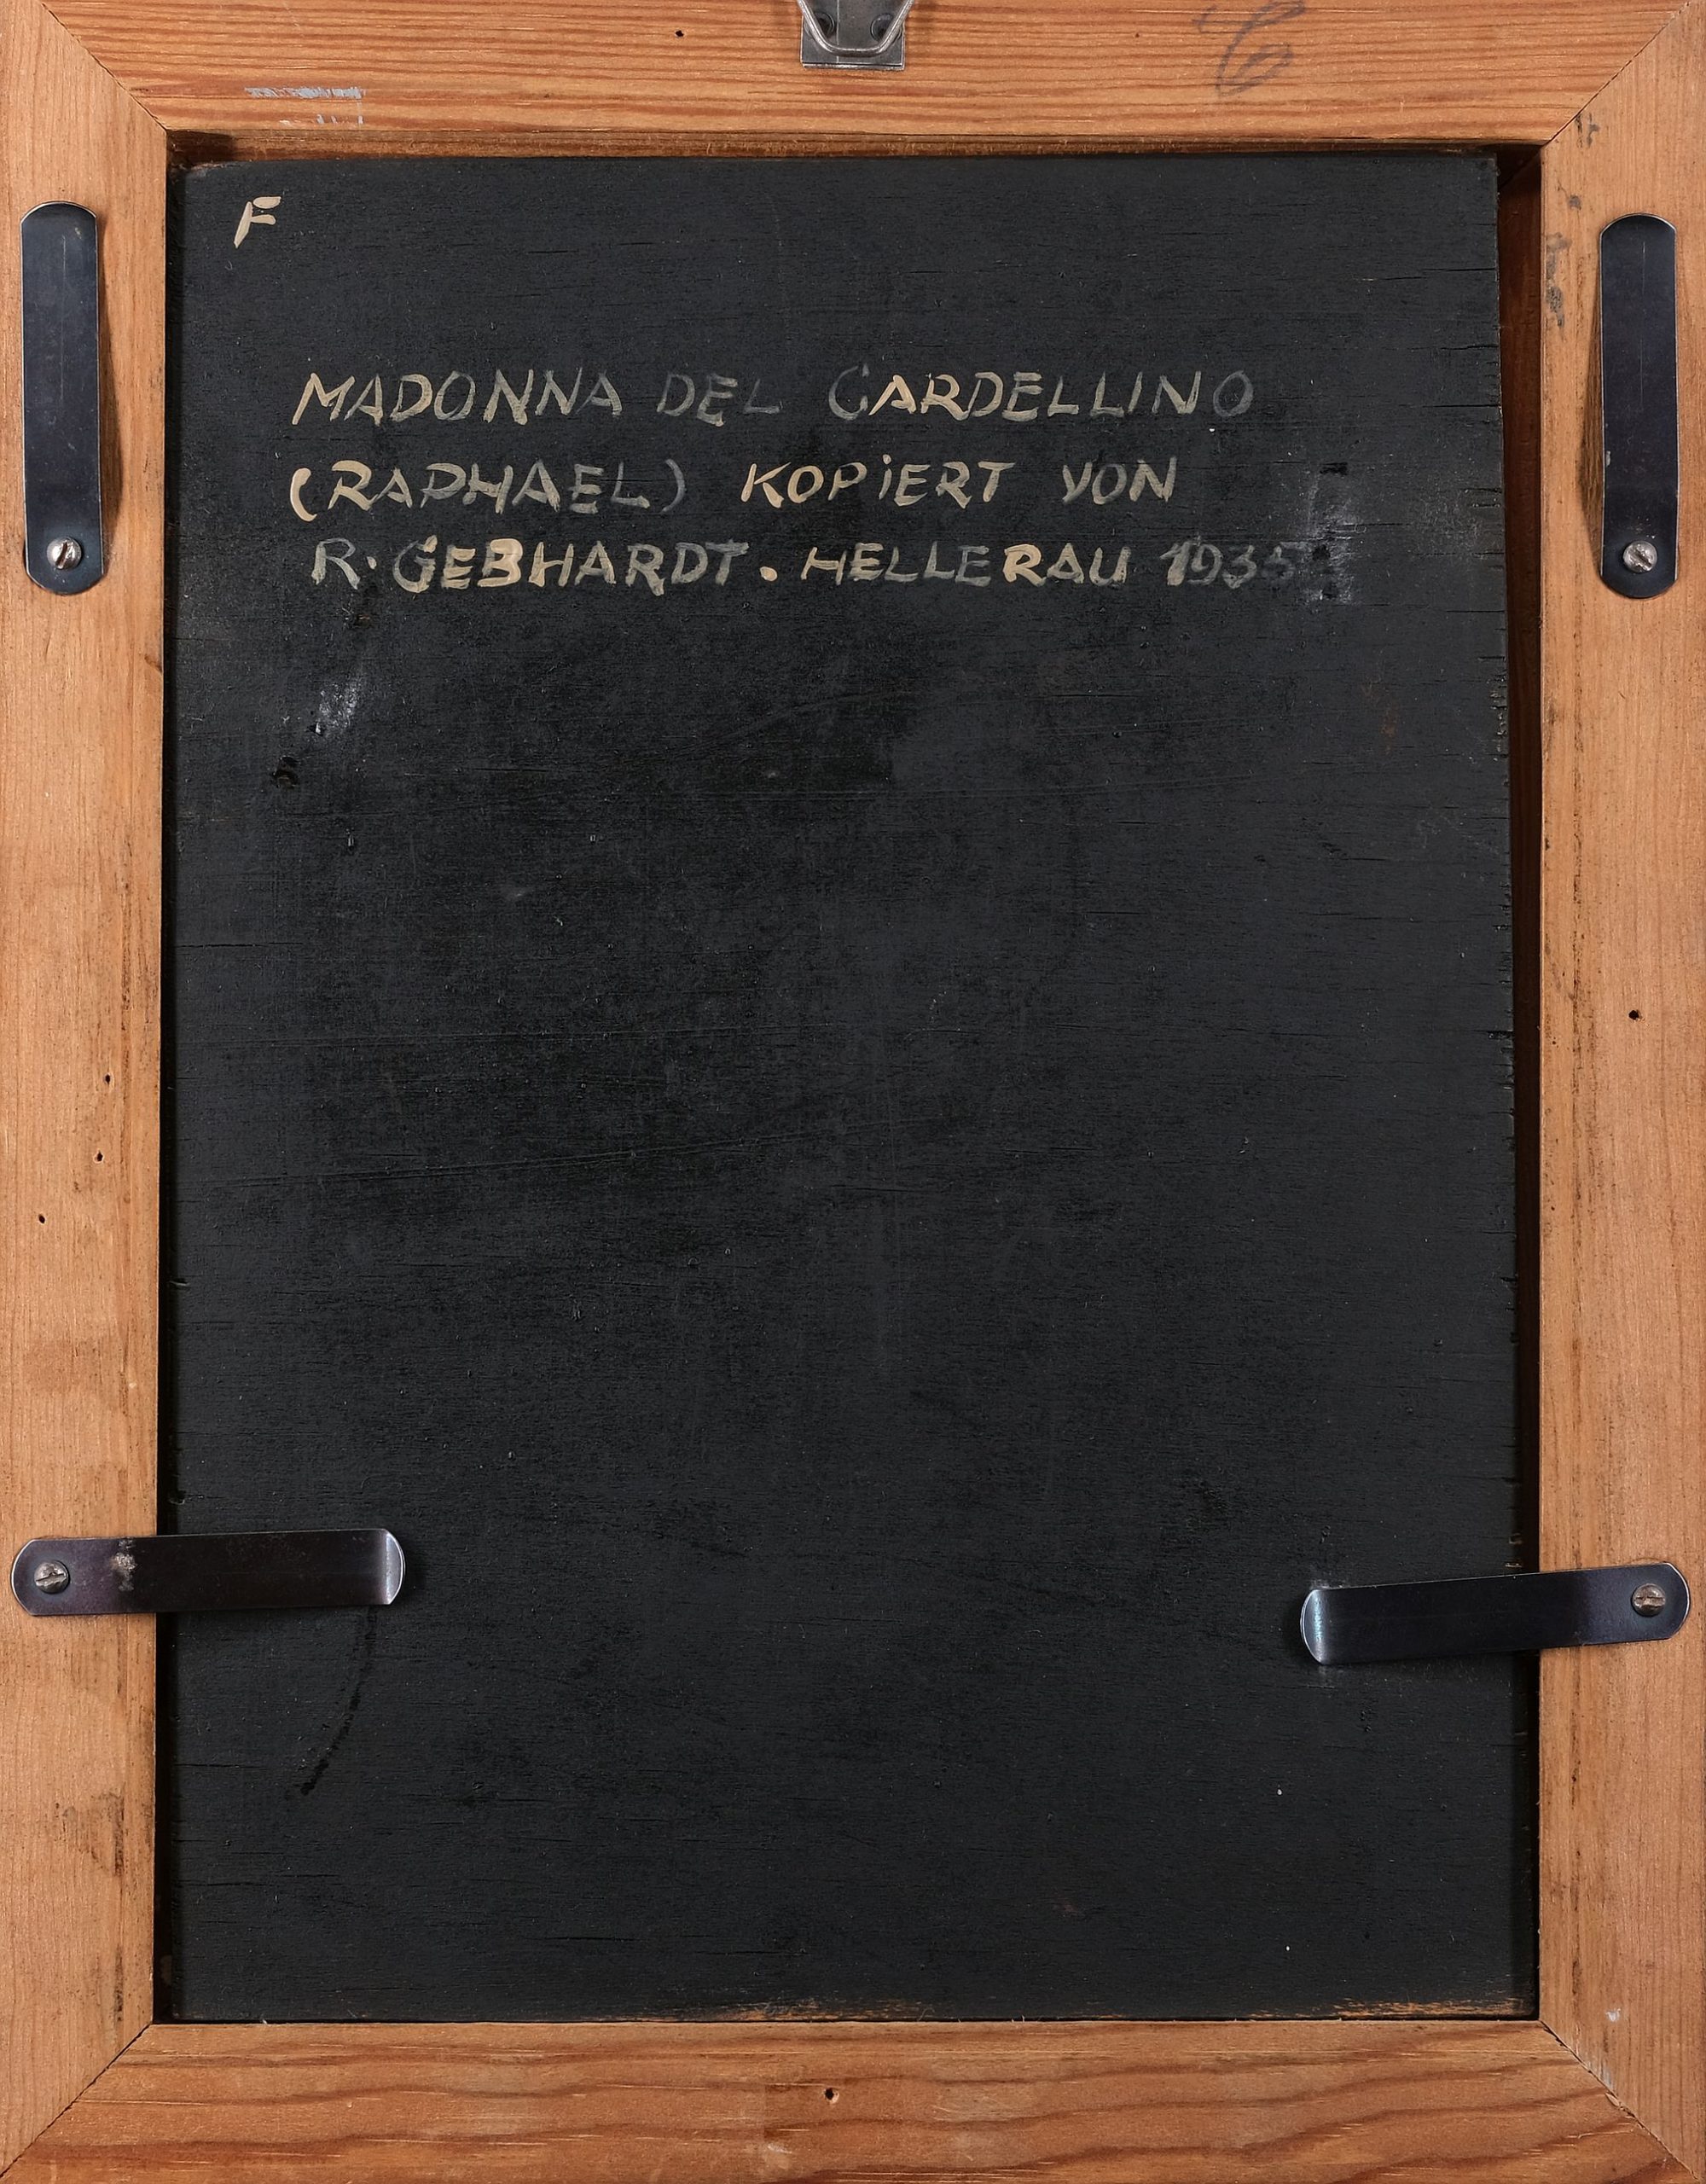 F
MADONNA DEL CARDELLINO
(RAPHAEL) KOPiERT VON
R. GEBHARDT. HELLERAU 1935